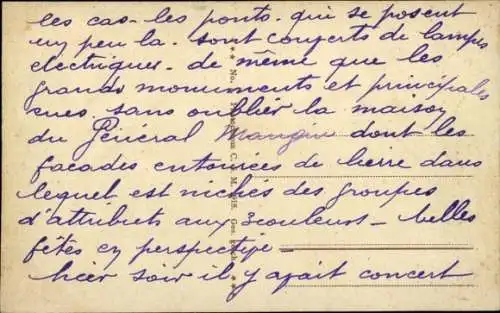 les cas - les ponts - qui se posent
un peu la - sont couverts de lampes
electriques - de même que les
grands monuments et principales
rues - sans oublier la maison
du Général Mangin dont les
facades entourées de lierre dans
lequel est nichés des groupes
d'attributs aux 3 couleurs - belles
fêtes en perspective -
hier soir il y avait concert